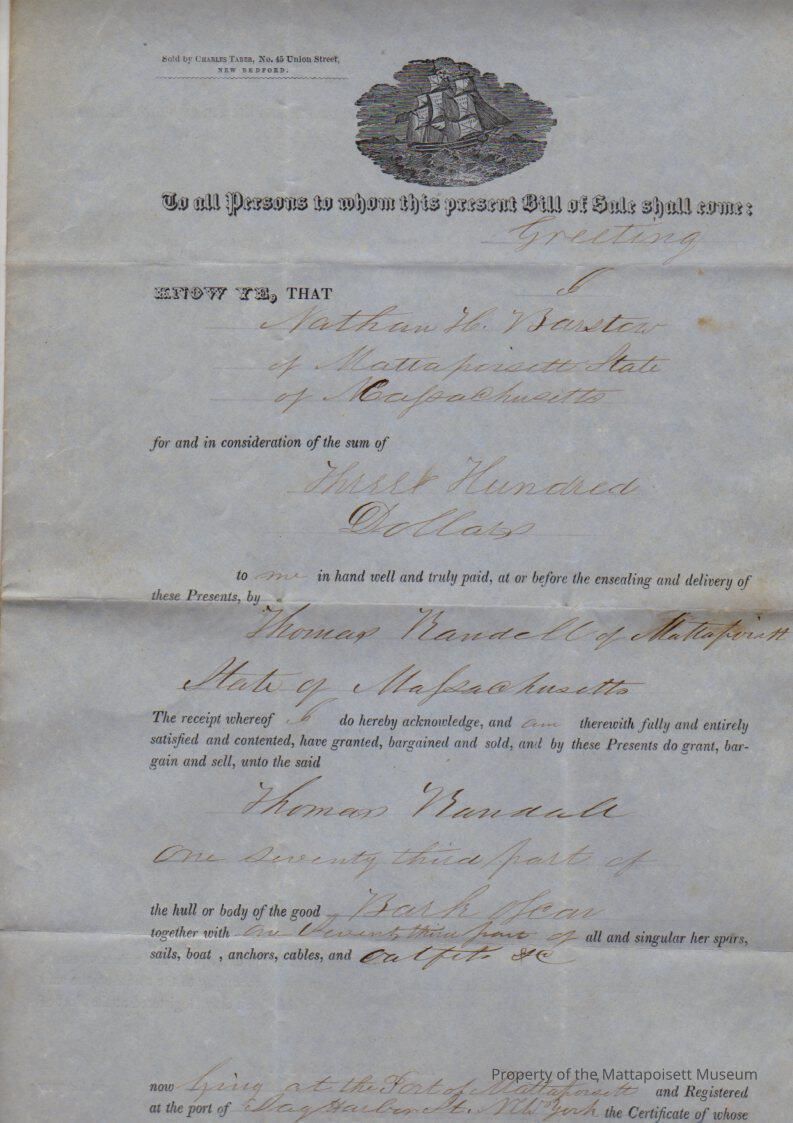 Sold by CHARLES TABER, No. 45 Union Street,
NEW BEDFORD.
To all Persons to whom this present Bill of Sale shall come:
Greeting
KNOW YE, THAT I
Nathan H. Barstow
of Mattapoisett State
of Massachusetts
for and in consideration of the sum of
Three Hundred
Dollars
to me in hand well and truly paid, at or before the ensealing and delivery of
these Presents, by
Thomas Randell of Mattapoisett
State of Massachusetts
The receipt whereof I do hereby acknowledge, and am therewith fully and entirely
satisfied and contented, have granted, bargained and sold, and by these Presents do grant, bar-
gain and sell, unto the said
Thomas Randall
One seventy third part of
the hull or body of the good Bark Oscar
together with one Seventy third part of all and singular her spars,
sails, boat , anchors, cables, and outfits &c
Property of the Mattapoisett Museum
now lying at the Port of Mattapoisett and Registered
at the port of Sag Harbor St. New York the Certificate of whose